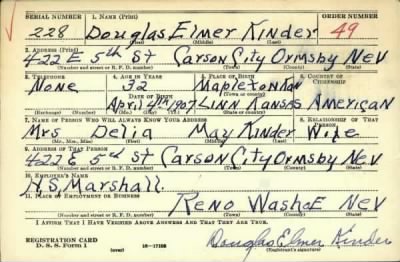 SERIAL NUMBER 1. NAME (Print) ORDER NUMBER
228 Douglas Elmer Kinder 49
(First) (Middle) (Last)
2. ADDRESS (Print)
422 E 5th St Carson City Ormsby Nev
(Number and street or R. F. D. number) (Town) (County) (State)
3. TELEPHONE 4. AGE IN YEARS 5. PLACE OF BIRTH 6. COUNTRY OF CITIZENSHIP
None 32 Mapleton Kan
DATE OF BIRTH
April 4th 1907 Linn Kansas American
(Exchange) (Number) (Mo.) (Day) (Yr.) (State or country)
7. NAME OF PERSON WHO WILL ALWAYS KNOW YOUR ADDRESS 8. RELATIONSHIP OF THAT PERSON
Mrs Delia May Kinder Wife
(Mr., Mrs., Miss) (First) (Middle) (Last)
9. ADDRESS OF THAT PERSON
422 E 5th St Carson City Ormsby Nev
(Number and street or R. F. D. number) (Town) (County) (State)
10. EMPLOYER'S NAME
H.S. Marshall.
11. PLACE OF EMPLOYMENT OR BUSINESS
Reno Washoe Nev
(Number and street or R. F. D. number) (Town) (County) (State)
I AFFIRM THAT I HAVE VERIFIED ABOVE ANSWERS AND THAT THEY ARE TRUE.
REGISTRATION CARD
D. S. S. Form 1 (over) Douglas Elmer Kinder
(Registrant's signature)